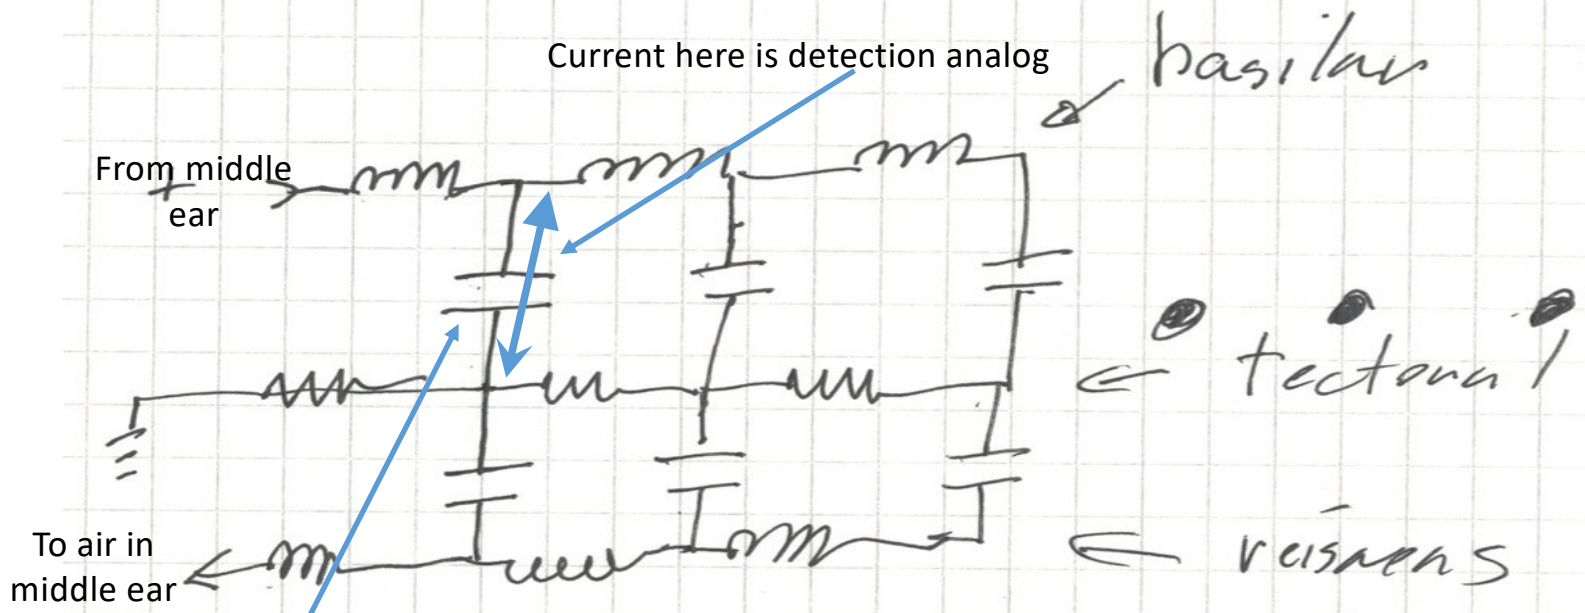 Current here is detection analog
basilar
From middle
ear
tectoral
To air in
middle ear
reisners